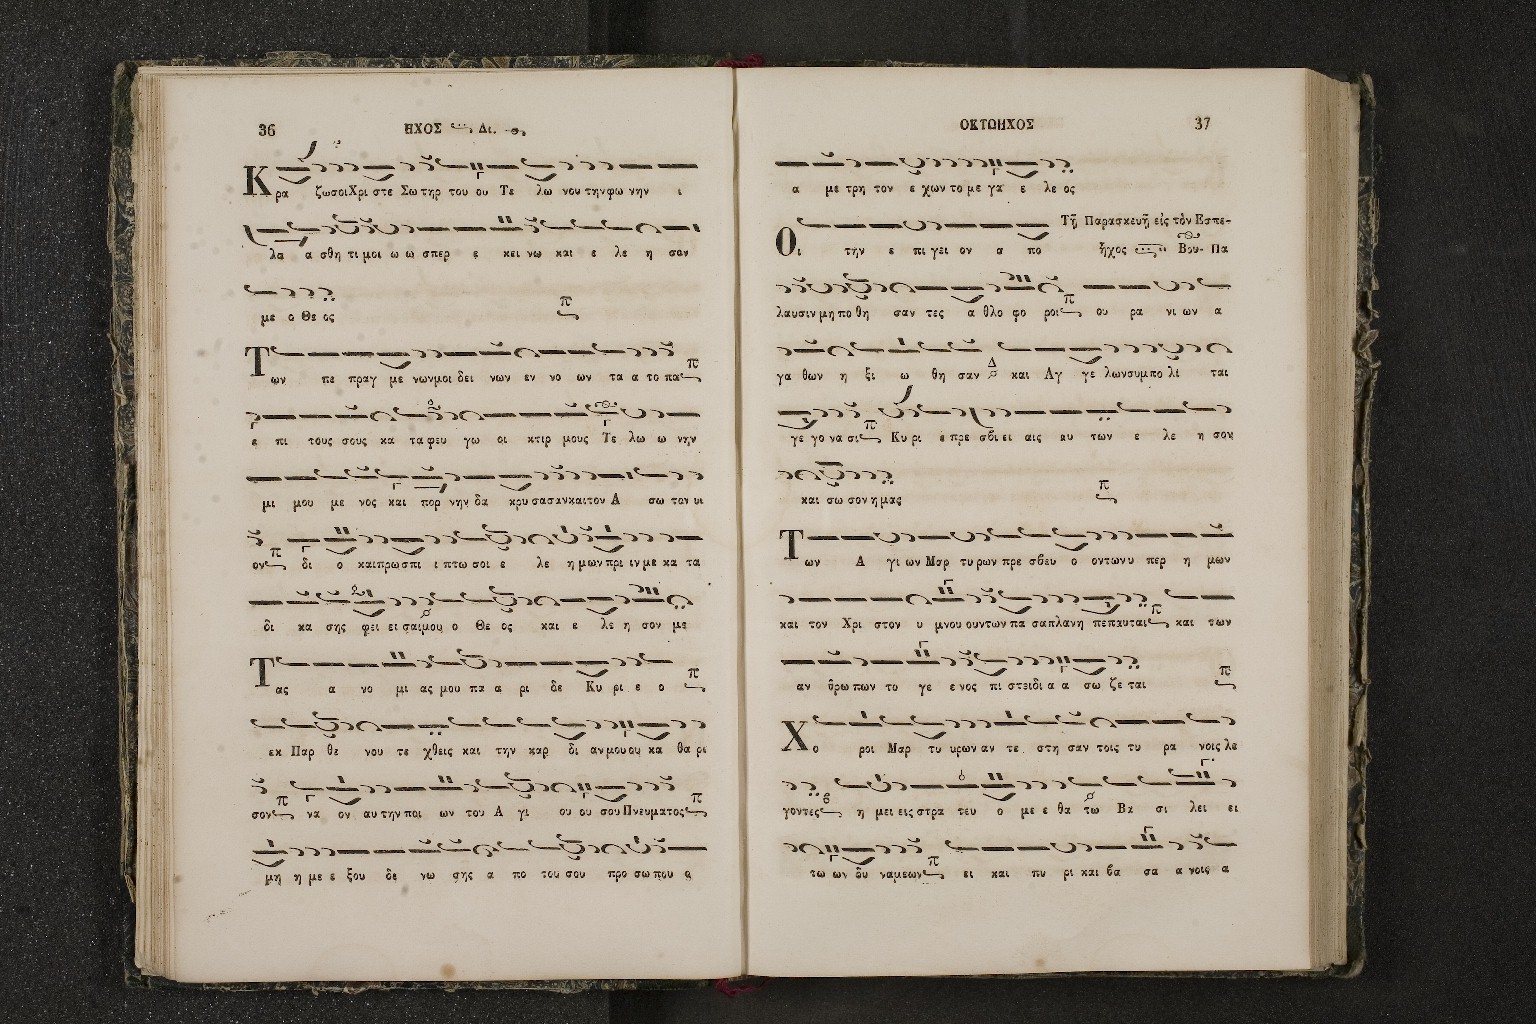 36 ΗΧΟΣ Δι.
Κρα ζωσοιΧρι στε Σωτηρ του ου Τε λω νουτηνφω νην ι
λα α σθη τι μοι ω ω σπερ ε κει νω και ε λε η σον
με ο Θε ος π
Των πε πραγ με νωνμοι δει νων εν νο ων τα α το πα π
ε πι τους σους κα ταφευ γω οι κτιρ μους Τε λω ω νην
μι μου με νος και πορ νην δα κρυ σασανκαιτον Α σω τον υι
ον π δι ο καιπρωσπι ι πτω σοι ε λε η μων πρι ινμε κα τα
δι κα σης φει ει σαιμου ο Θε ος και ε λε η σον με
Τας α νο μι ας μου πα α ρι δε Κυ ρι ε ο π
εκ Παρ θε νου τε χθεις και την καρ δι ανμουου κα θα ρι
σον π να ον αυ την ποι ων του Α γι ου ου σου Πνευματος π
μη η με ε ξου δε νω σης α πο του σου προ σωπου ο
ΟΚΤΩΗΧΟΣ 37
α με τρη τον ε χων το με γα ε λε ος
Τῇ Παρασκευῇ εἰς τὸν Εσπε-
Οι την ε πι γει ον α πο ἦχος Βου- Πα
λαυσιν μη πο θη σαν τες α θλο φο ροι π ου ρα νι ων α
γα θων η ξι ω θη σαν Δ και Αγ γε λωνσυμπο λι ται
γε γο να σι π Κυ ρι ε πρε σβι ει αις αυ των ε λε η σον
και σω σον η μας π
Των Α γι ων Μαρ τυ ρων πρε σβευ ο οντων υ περ η μων
και τον Χρι στον υ μνου ουντων πα σαπλανη πεπαυται π και των
αν θρω πων το γε ε νος πι στειδι α α σω ζε ται π
Χο ροι Μαρ τυ υρων αν τε στη σαν τοις τυ ρα νοις λε
γοντες η μει εις στρα τευ ο με ε θα τω Βα σι λει ει
τω ων δυ ναμεων π ει και πυ ρι και βα σα α νοις α